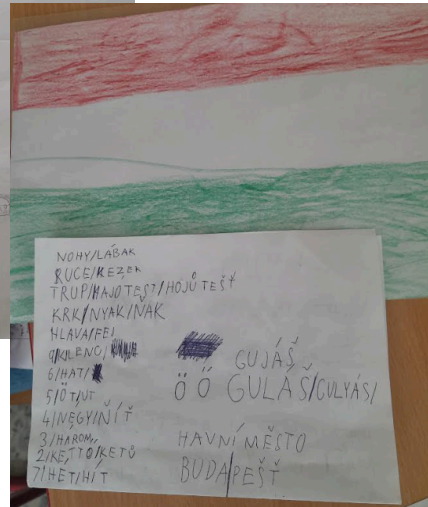 NOHY/LÁBAK
RUCE/KEZEK
TRUP/HAJOTEST/HÓJŮ TEŠŤ
KRK/NYAK/ŇÁK
HLAVA/FEJ
9/KILENC/
6/HAT/
5/ÖT/ÜT
4/NÉGY/NÍŤ
3/HÁROM,
2/KETTŐ/KETŮ
7/HÉT/HÍT
GUJÁŠ
Ö Ő GULÁŠ/GULYÁS/
HAVNÍ MĚSTO
BUDAPEŠŤ